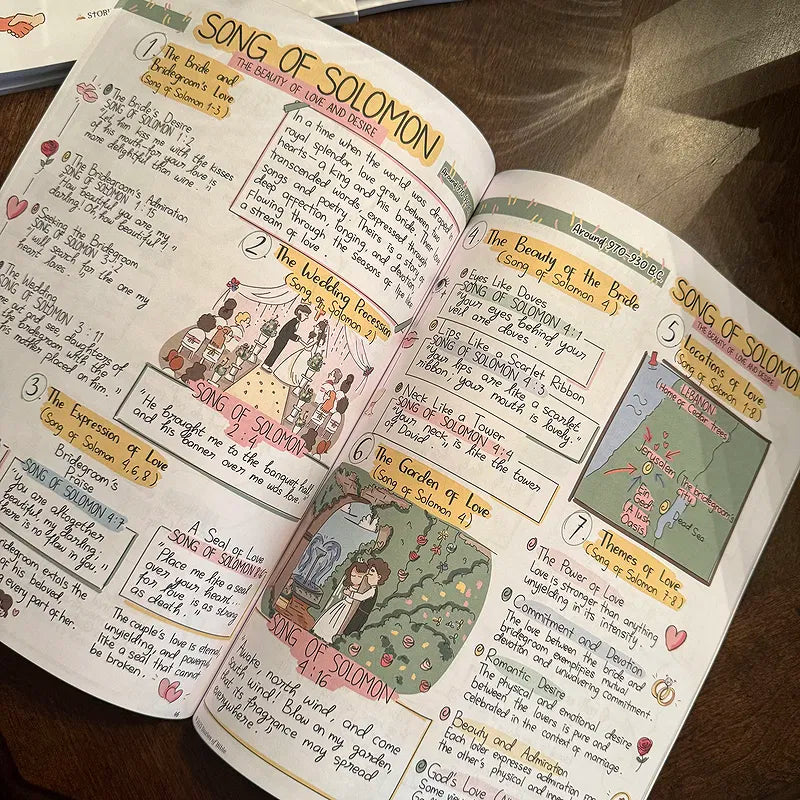 STORY
SONG OF SOLOMON
THE BEAUTY OF LOVE AND DESIRE
1. The Bride and
Bridegroom's Love
(Song of Solomon 1-3)
The Bride's Desire
SONG OF SOLOMON 1:2
"Let him kiss me with the kisses
of his mouth-for your love is
more delightful than wine."
The Bridegroom's Admiration
SONG OF SOLOMON 1:15
"How beautiful you are, my
darling! Oh, how beautiful!"
Seeking the Bridegroom
SONG OF SOLOMON 3:2
will search for the one my
heart loves."
The Wedding
SONG OF SOLOMON 3:11
me out and see, daughters of
the bridegroom with the
his mother placed on him."
In a time when the world was draped
royal splendor, love grew between two
hearts-a king and his bride. Their love
transcended words, expressed through
songs and poetry. Theirs is a story of
deep affection, longing, and devotion
flowing through the seasons of the
a stream of love.
2. The Wedding Procession
(Song of Solomon 2)
SONG OF SOLOMON
2:4
"He brought me to the banquet hall,
and his banner over me was love."
3. The Expression of Love
(Song of Solomon 4,6,8)
Bridegroom's
Praise
SONG OF SOLOMON 4:7
"you are altogether
beautiful, my darling;
there is no flaw in you."
Bridegroom extols the
of his beloved,
every part of her.
A Seal of Love
SONG OF SOLOMON
"Place me like a seal
over your heart...
for love is as strong
as death."
The couple's love is eternal
unyielding, and powerful
like a seal that cannot
be broken.
Around 970-930 B.C.
4. The Beauty of the Bride
(Song of Solomon 4)
Eyes Like Doves
SONG OF SOLOMON 4:1
"your eyes behind your
veil are doves."
Lips Like a Scarlet Ribbon
SONG OF SOLOMON 4:3
"your lips are like a scarlet
ribbon; your mouth is lovely."
Neck Like a Tower
SONG OF SOLOMON 4:4
"your neck is like the tower
of David"
6. The Garden of Love
(Song of Solomon 4)
SONG OF SOLOMON
4:16
"Awake, north wind, and come,
south wind! Blow on my garden,
that its fragrance may spread
everywhere."
SONG OF SOLOMON
THE BEAUTY OF LOVE AND DESIRE
5. Locations of Love
(Song of Solomon 1-8)
LEBANON
(Home of Cedar Trees)
Jerusalem (The bridegroom's
City)
Ein
Gedi
(A lush
Oasis)
Dead Sea
7. Themes of Love
(Song of Solomon 7-8)
The Power of Love
Love is stronger than anything
unyielding in its intensity.
Commitment and Devotion
The love between the bride and
bridegroom exemplifies mutual
devotion and unwavering commitment.
Romantic Desire
The physical and emotional desire
between the lovers is pure and
celebrated in the context of marriage.
Beauty and Admiration
Each lover expresses admiration for
the other's physical and inner
God's Love
Some view